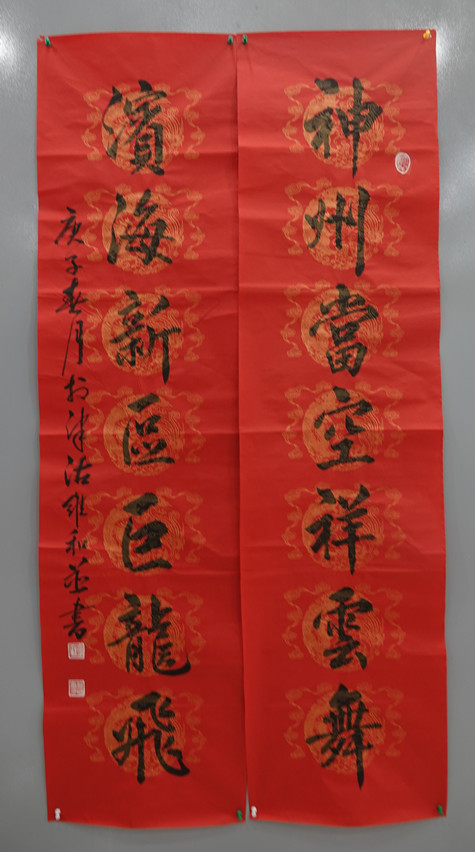 神州當空祥雲舞
濱海新區巨龍飛
庚子春月於津沽維和並書